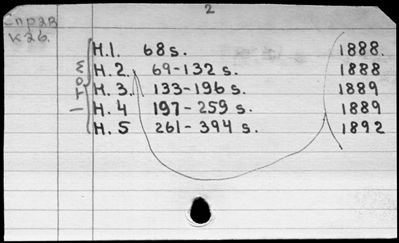 2
Спр2В
к26.
1 том
н.1. 68 s. 1888.
н.2. 69-132 s. 1888
н.3. 133-196 s. 1889
н.4 197-259 s. 1889
н.5 261-394 s. 1892